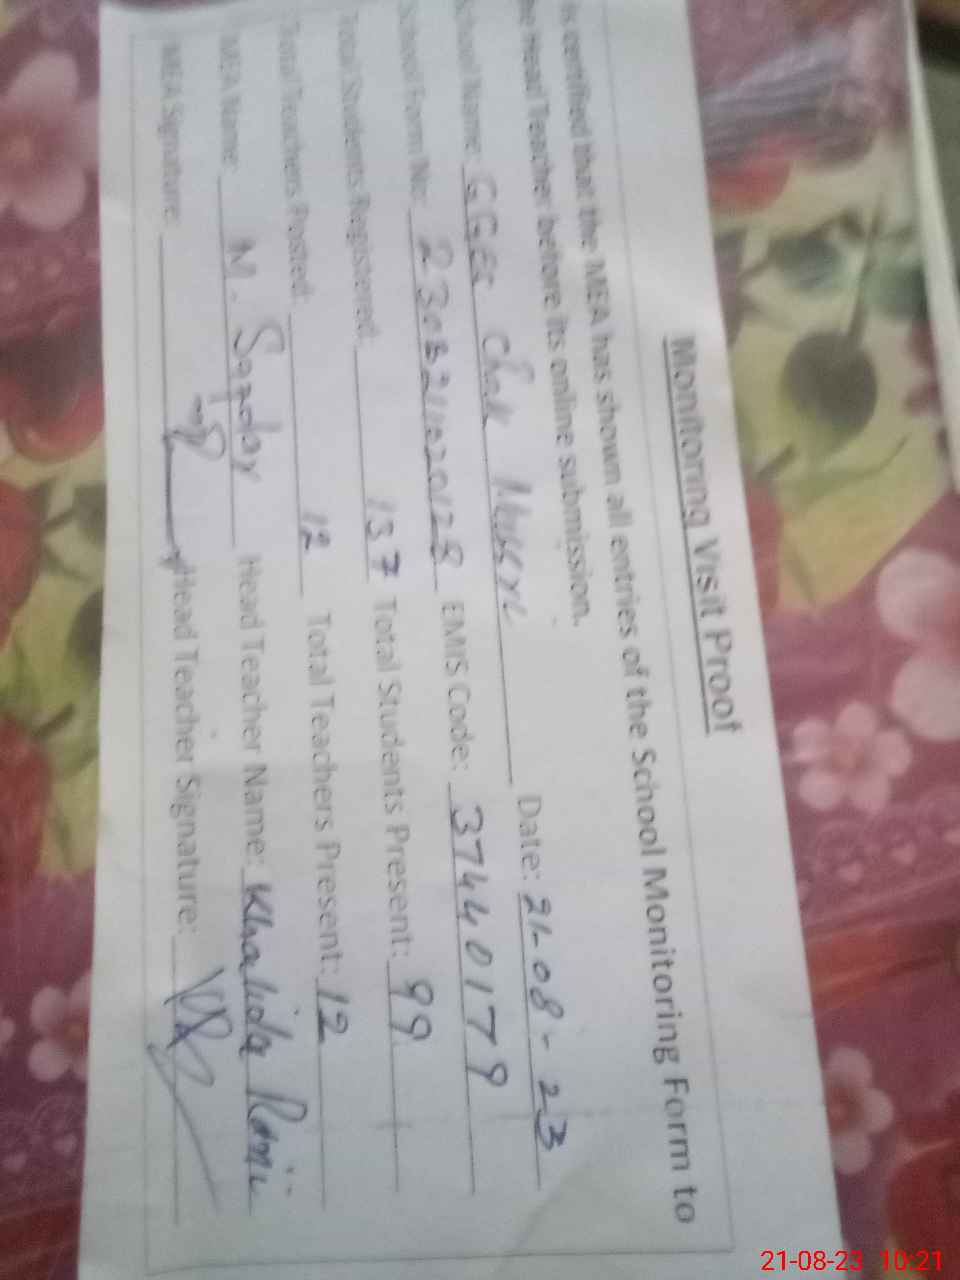 Monitoring Visit Proof
is certified that the MEA has shown all entries of the School Monitoring Form to
Head Teacher before its online submission.
School Name: Chak Date: 21-08-23
School Form No: EMIS Code: 37440179
Total Students Registered: 137 Total Students Present: 99
Total Teachers Posted: 12 Total Teachers Present: 12
MEA Name: M. Head Teacher Name: Khalida
MEA Signature: Head Teacher Signature:
21-08-23 10:21